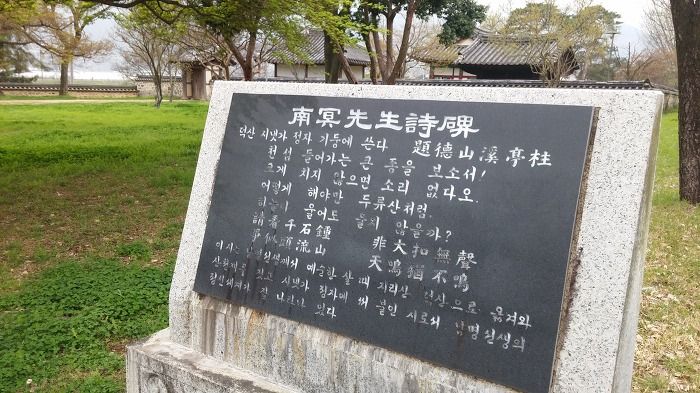 南冥先生詩碑
덕산 시냇가 정자 기둥에 쓴다 題德山溪亭柱
천 섬 들어가는 큰 종을 보소서!
크게 치지 않으면 소리 없다오.
어떻게 해야만 두류산처럼,
하늘이 울어도 울지 않을까?
請看千石鍾 非大扣無聲
爭似頭流山 天鳴猶不鳴
이 시는 선생께서 예순한 살 때 지리산 덕산으로 옮겨와
산천재를 짓고 시냇가 정자에 써 붙인 시로서 남명선생의
잘 나타나 있다